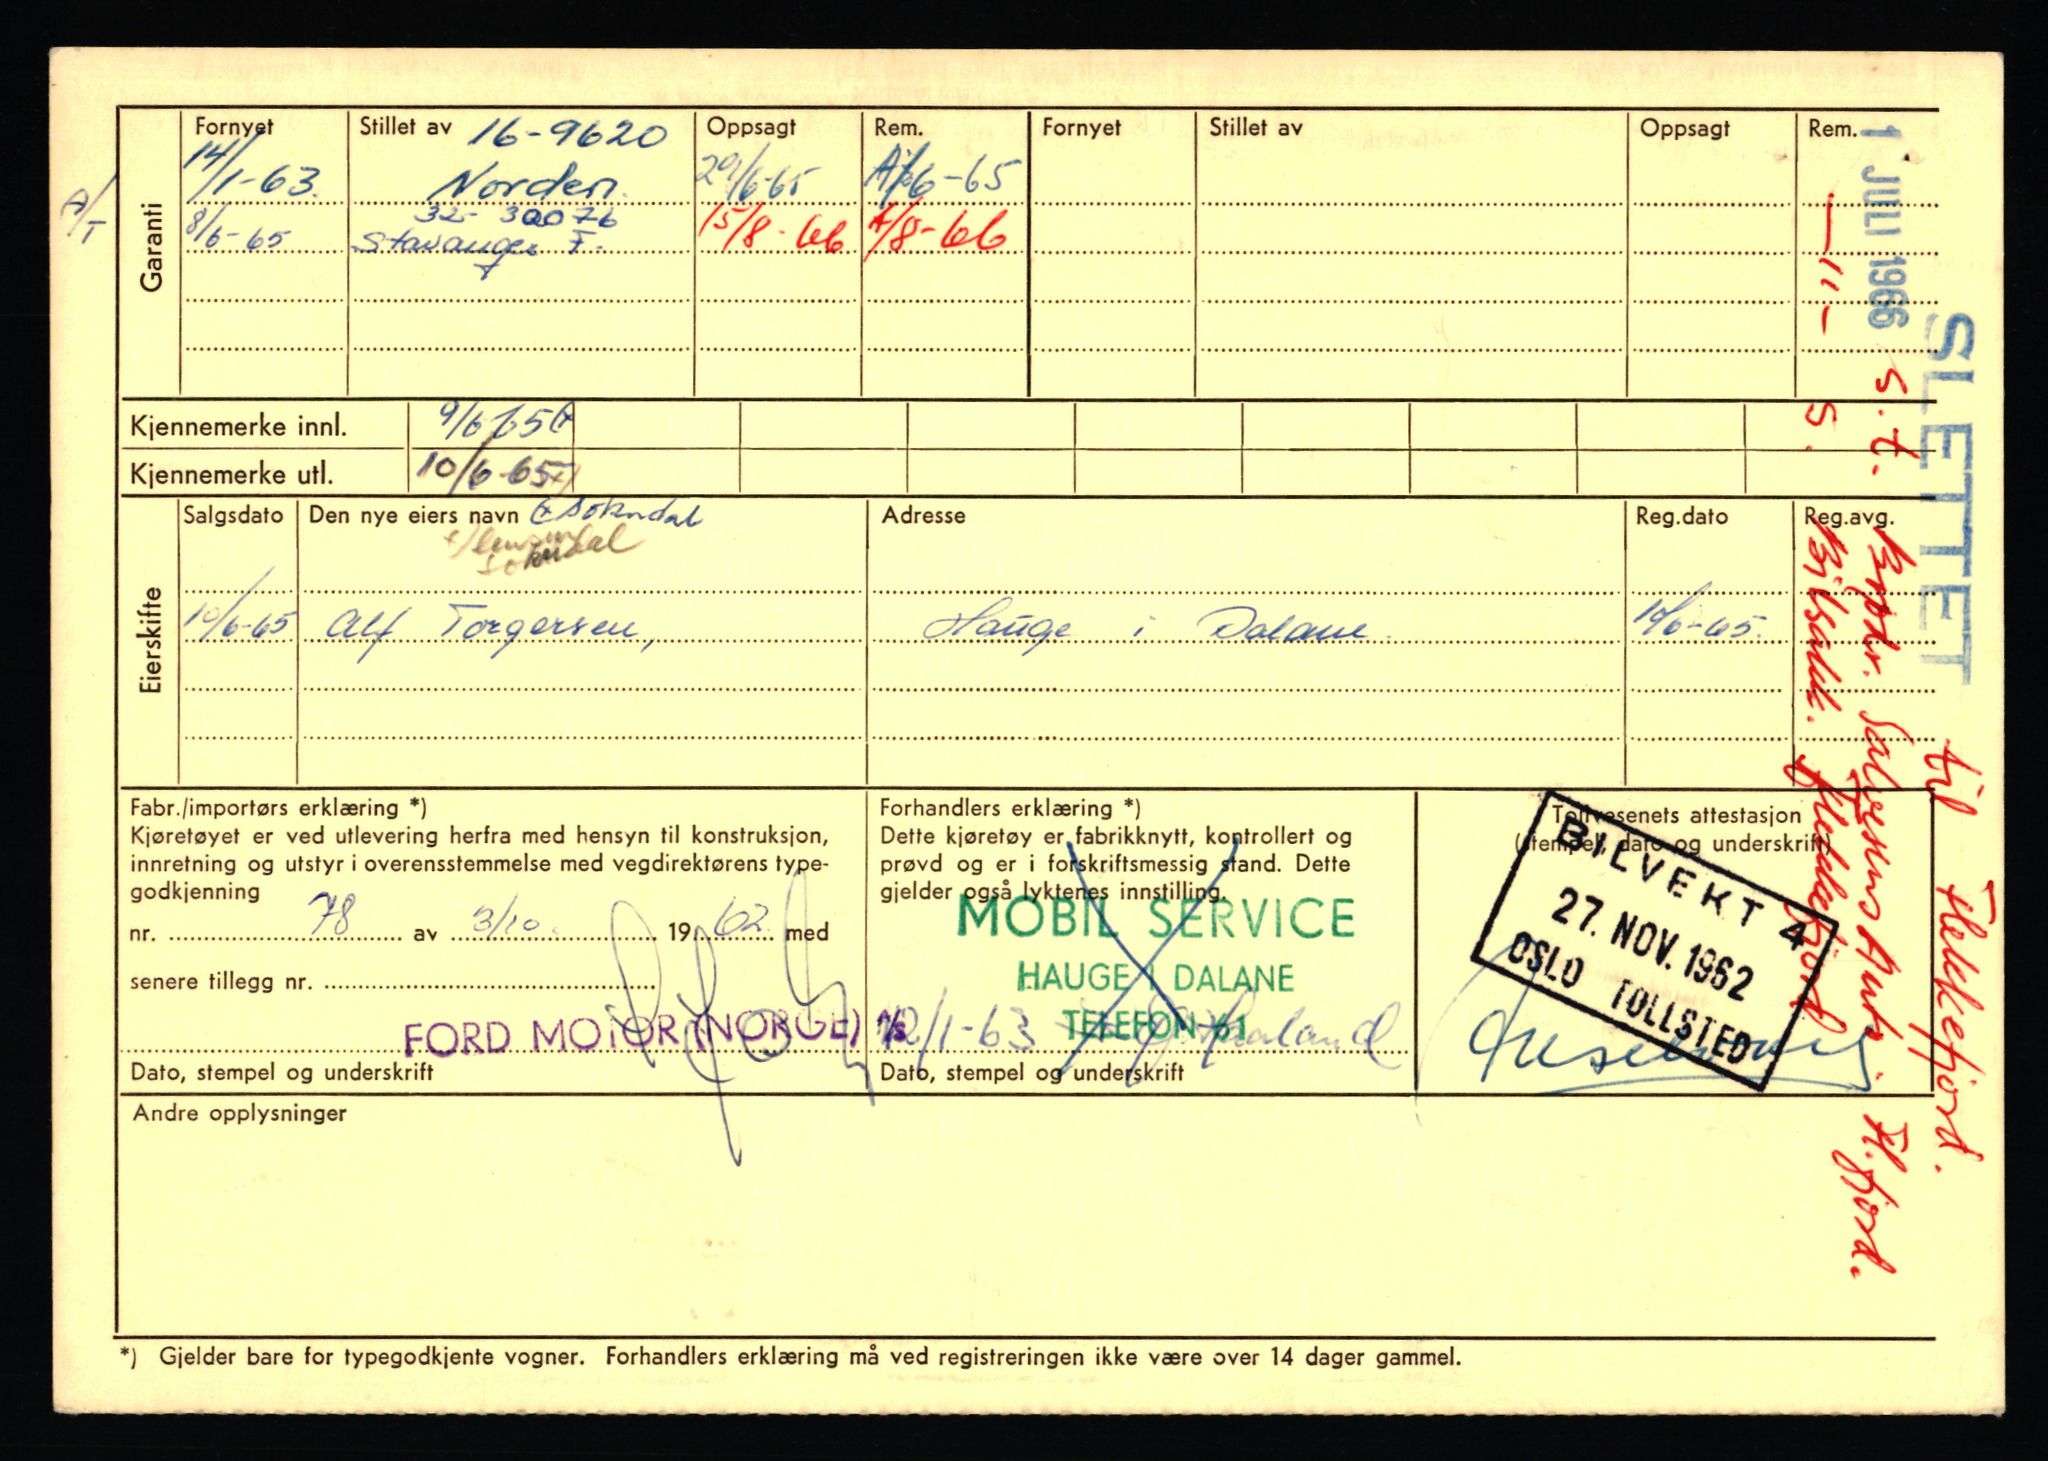 Fornyet Stillet av 16-9620 Oppsagt Rem. Fornyet Stillet av Oppsagt Rem.
Garanti
14/1-63. Norden. 29/6-65 /6-65
A/T
8/6-65 32-30076 15/8-66 /8-66
Stavanger F.
Kjennemerke innl. 9/6-65
Kjennemerke utl. 10/6-65
Eierskifte
Salgsdato Den nye eiers navn Sokndal Adresse Reg.dato Reg.avg.
Sokndal
10/6-65 Alf Torgersen, Hauge i Dalane. 10/6-65.
Fabr./importørs erklæring *)
Kjøretøyet er ved utlevering herfra med hensyn til konstruksjon,
innretning og utstyr i overensstemmelse med vegdirektørens type-
godkjenning
nr. 78 av 3/10. 1962. med
senere tillegg nr.
FORD MOTOR (NORGE) A/S
Dato, stempel og underskrift
Forhandlers erklæring *)
Dette kjøretøy er fabrikknytt, kontrollert og
prøvd og er i forskriftsmessig stand. Dette
gjelder også lyktenes innstilling.
MOBIL SERVICE
HAUGE I DALANE
TELEFON 61
12/1-63 Haaland
Dato, stempel og underskrift
Tollvesenets attestasjon
(stempel, dato og underskrift)
BILVEKT 4
27. NOV. 1962
OSLO TOLLSTED
Andre opplysninger
*) Gjelder bare for typegodkjente vogner. Forhandlers erklæring må ved registreringen ikke være over 14 dager gammel.
SLETTET til Flekkefjord.
1 JULI 1966 s.t. Brødr. Salvesens Aut. Fl.fjord.
— " — s. Bilsakk. Flekkefjord